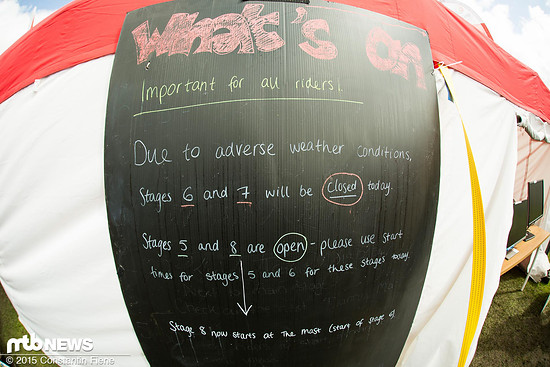 What's on
Important for all riders!
Due to adverse weather conditions,
Stages 6 and 7 will be closed today.
Stages 5 and 8 are open - please use start
times for stages 5 and 6 for these stages today.
Stage 8 now starts at The mast (start of stage
mtb NEWS
© 2015 Constantin Fiene